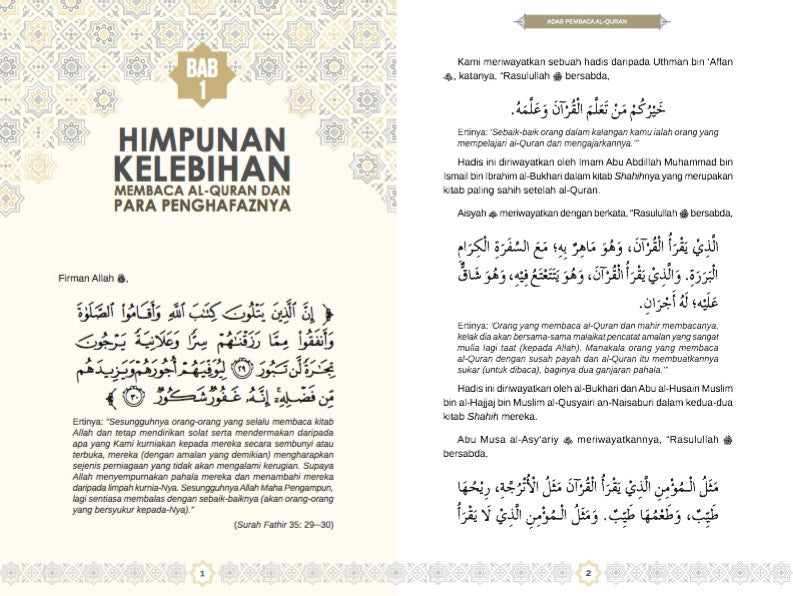 BAB
1
HIMPUNAN
KELEBIHAN
MEMBACA AL-QURAN DAN
PARA PENGHAFAZNYA
Firman Allah ﷻ,
﴿ إِنَّ الَّذِينَ يَتْلُونَ كِتَٰبَ اللَّهِ وَأَقَامُوا الصَّلَوٰةَ
وَأَنفَقُوا مِمَّا رَزَقْنَٰهُمْ سِرًّا وَعَلَانِيَةً يَرْجُونَ
تِجَٰرَةً لَّن تَبُورَ ﴿٢٩﴾ لِيُوَفِّيَهُمْ أُجُورَهُمْ وَيَزِيدَهُم
مِّن فَضْلِهِۦٓ إِنَّهُۥ غَفُورٌ شَكُورٌ ﴿٣٠﴾ ﴾
Ertinya: "Sesungguhnya orang-orang yang selalu membaca kitab
Allah dan tetap mendirikan solat serta mendermakan daripada
apa yang Kami kurniakan kepada mereka secara sembunyi atau
terbuka, mereka (dengan amalan yang demikian) mengharapkan
sejenis perniagaan yang tidak akan mengalami kerugian. Supaya
Allah menyempurnakan pahala mereka dan menambahi mereka
daripada limpah kurnia-Nya. Sesungguhnya Allah Maha Pengampun,
lagi sentiasa membalas dengan sebaik-baiknya (akan orang-orang
yang bersyukur kepada-Nya)."
(Surah Fathir 35: 29─30)
1
ADAB PEMBACA AL-QURAN
Kami meriwayatkan sebuah hadis daripada Uthman bin 'Affan
, katanya, "Rasulullah ﷺ bersabda,
خَيْرُكُمْ مَنْ تَعَلَّمَ الْقُرْآنَ وَعَلَّمَهُ.
Ertinya: 'Sebaik-baik orang dalam kalangan kamu ialah orang yang
mempelajari al-Quran dan mengajarkannya.'"
Hadis ini diriwayatkan oleh Imam Abu Abdillah Muhammad bin
Ismail bin Ibrahim al-Bukhari dalam kitab Shahihnya yang merupakan
kitab paling sahih setelah al-Quran.
Aisyah meriwayatkan dengan berkata, "Rasulullah ﷺ bersabda,
الَّذِيْ يَقْرَأُ الْقُرْآنَ، وَهُوَ مَاهِرٌ بِهِ؛ مَعَ السَّفَرَةِ الْكِرَامِ
الْبَرَرَةِ. وَالَّذِيْ يَقْرَأُ الْقُرْآنَ، وَهُوَ يَتَتَعْتَعُ فِيْهِ، وَهُوَ شَاقٌّ
عَلَيْهِ؛ لَهُ أَجْرَانِ.
Ertinya: 'Orang yang membaca al-Quran dan mahir membacanya,
kelak dia akan bersama-sama malaikat pencatat amalan yang sangat
mulia lagi taat (kepada Allah). Manakala orang yang membaca
al-Quran dengan susah payah dan al-Quran itu membuatkannya
sukar (untuk dibaca), baginya dua ganjaran pahala.'"
Hadis ini diriwayatkan oleh al-Bukhari dan Abu al-Husain Muslim
bin al-Hajjaj bin Muslim al-Qusyairi an-Naisaburi dalam kedua-dua
kitab Shahih mereka.
Abu Musa al-Asy'ariy meriwayatkannya, "Rasulullah ﷺ
bersabda,
مَثَلُ الْمُؤْمِنِ الَّذِيْ يَقْرَأُ الْقُرْآنَ مَثَلُ الْأُتْرُجَّةِ، رِيْحُهَا
طَيِّبٌ، وَطَعْمُهَا طَيِّبٌ. وَمَثَلُ الْمُؤْمِنِ الَّذِيْ لَا يَقْرَأُ
2